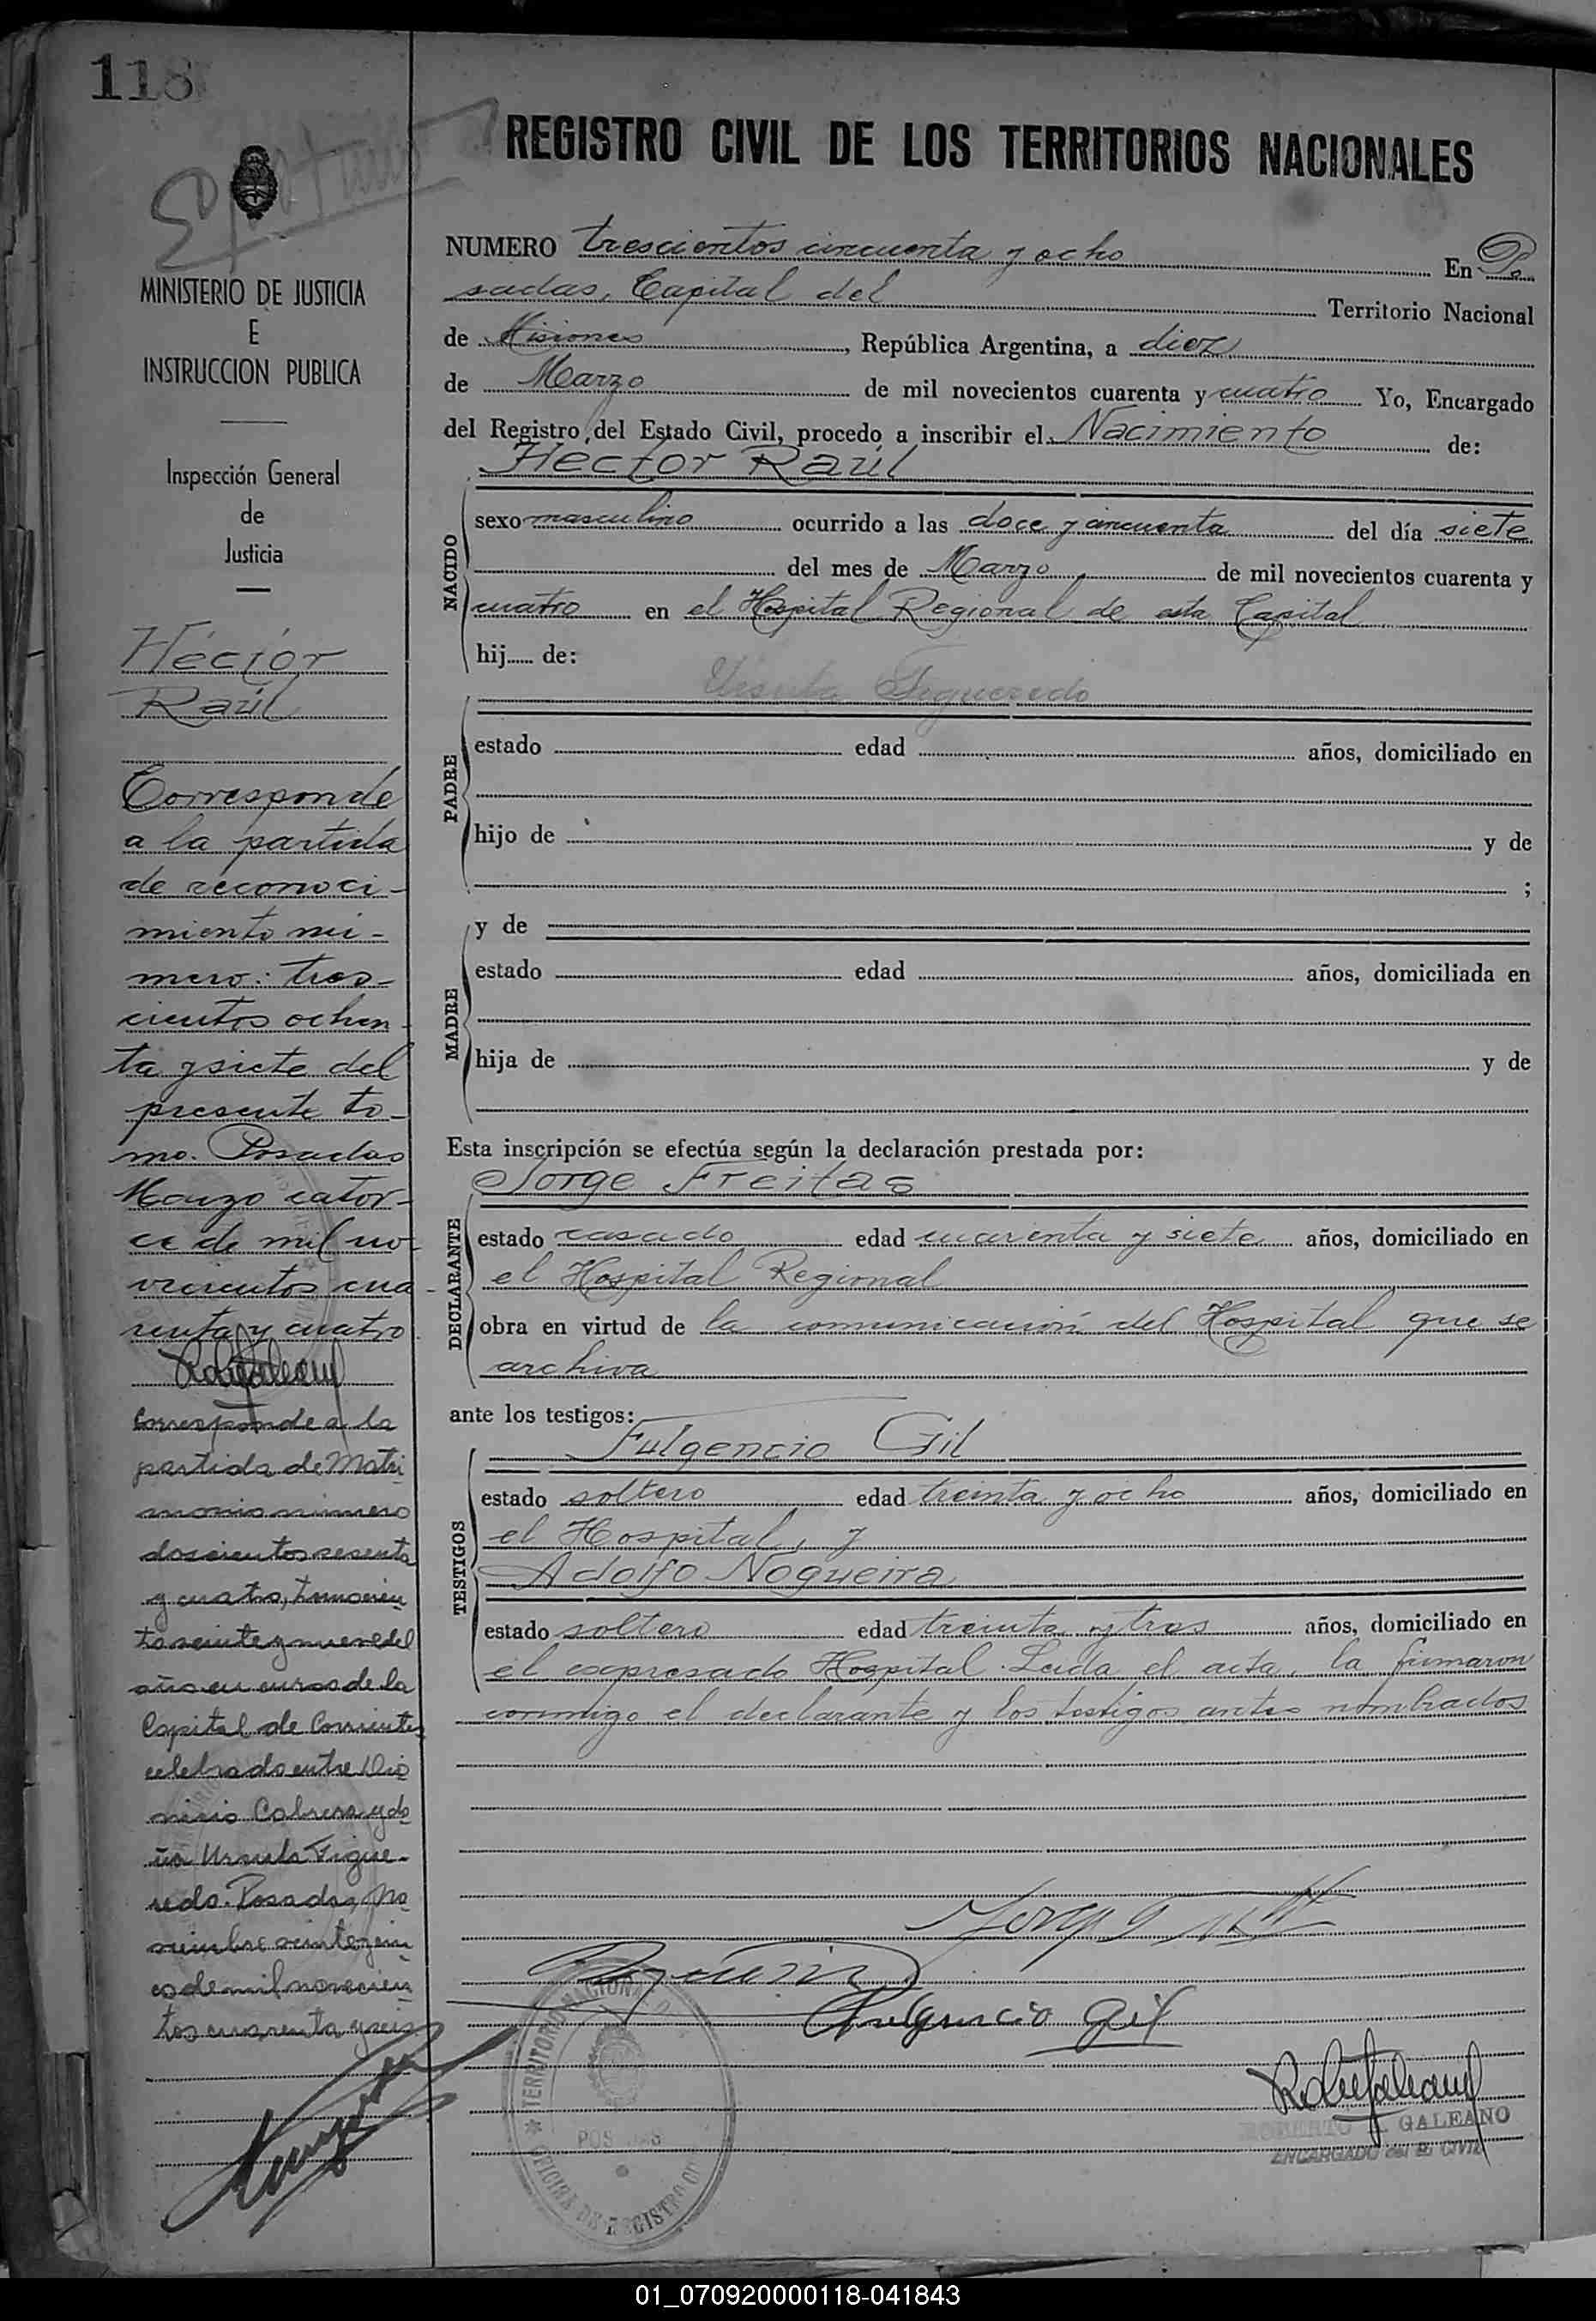 118
REGISTRO CIVIL DE LOS TERRITORIOS NACIONALES
MINISTERIO DE JUSTICIA
E
INSTRUCCION PUBLICA
Inspección General
de
Justicia
Héctor
Raúl
Corresponde
a la partida
de reconoci-
miento nú-
mero: tres-
cientos ochen-
ta y siete del
presente to-
mo. Posadas
Marzo cator-
ce de mil no-
vecientos cua-
renta y cuatro
Corresponde a la
partida de Matri
monio número
doscientos sesenta
y cuatro, tomo cien
to veinte y nueve del
año en curso de la
Capital de Corrientes
celebrado entre Dio
nicio Cabrera y do
ña Ursula Figue-
redo. Posadas, No
viembre veinte y cin
co de mil novecien
tos cuarenta y seis
NUMERO trescientos cincuenta y ocho En Po
sadas, Capital del Territorio Nacional
de Misiones, República Argentina, a diez
de Marzo de mil novecientos cuarenta y cuatro Yo, Encargado
del Registro del Estado Civil, procedo a inscribir el Nacimiento de:
Héctor Raúl
NACIDO
sexo masculino ocurrido a las doce y cincuenta del día siete
del mes de Marzo de mil novecientos cuarenta y
cuatro en el Hospital Regional de esta Capital
hij...... de:
Ursula Figueredo
PADRE
estado edad años, domiciliado en
hijo de y de
;
MADRE
y de
estado edad años, domiciliada en
hija de y de
Esta inscripción se efectúa según la declaración prestada por:
Jorge Freitas
DECLARANTE
estado casado edad cuarenta y siete años, domiciliado en
el Hospital Regional
obra en virtud de la comunicación del Hospital que se
archiva
ante los testigos:
Fulgencio Gil
TESTIGOS
estado soltero edad treinta y ocho años, domiciliado en
el Hospital, y
Adolfo Nogueira
estado soltero edad treinta y tres años, domiciliado en
el expresado Hospital. Leida el acta, la firmaron
conmigo el declarante y los testigos antes nombrados
Fulgencio Gil
TERRITORIO NACIONAL
POSADAS
OFICINA DE REGISTRO
ROBERTO GALEANO
ENCARGADO del R. CIVIL
01_070920000118-041843